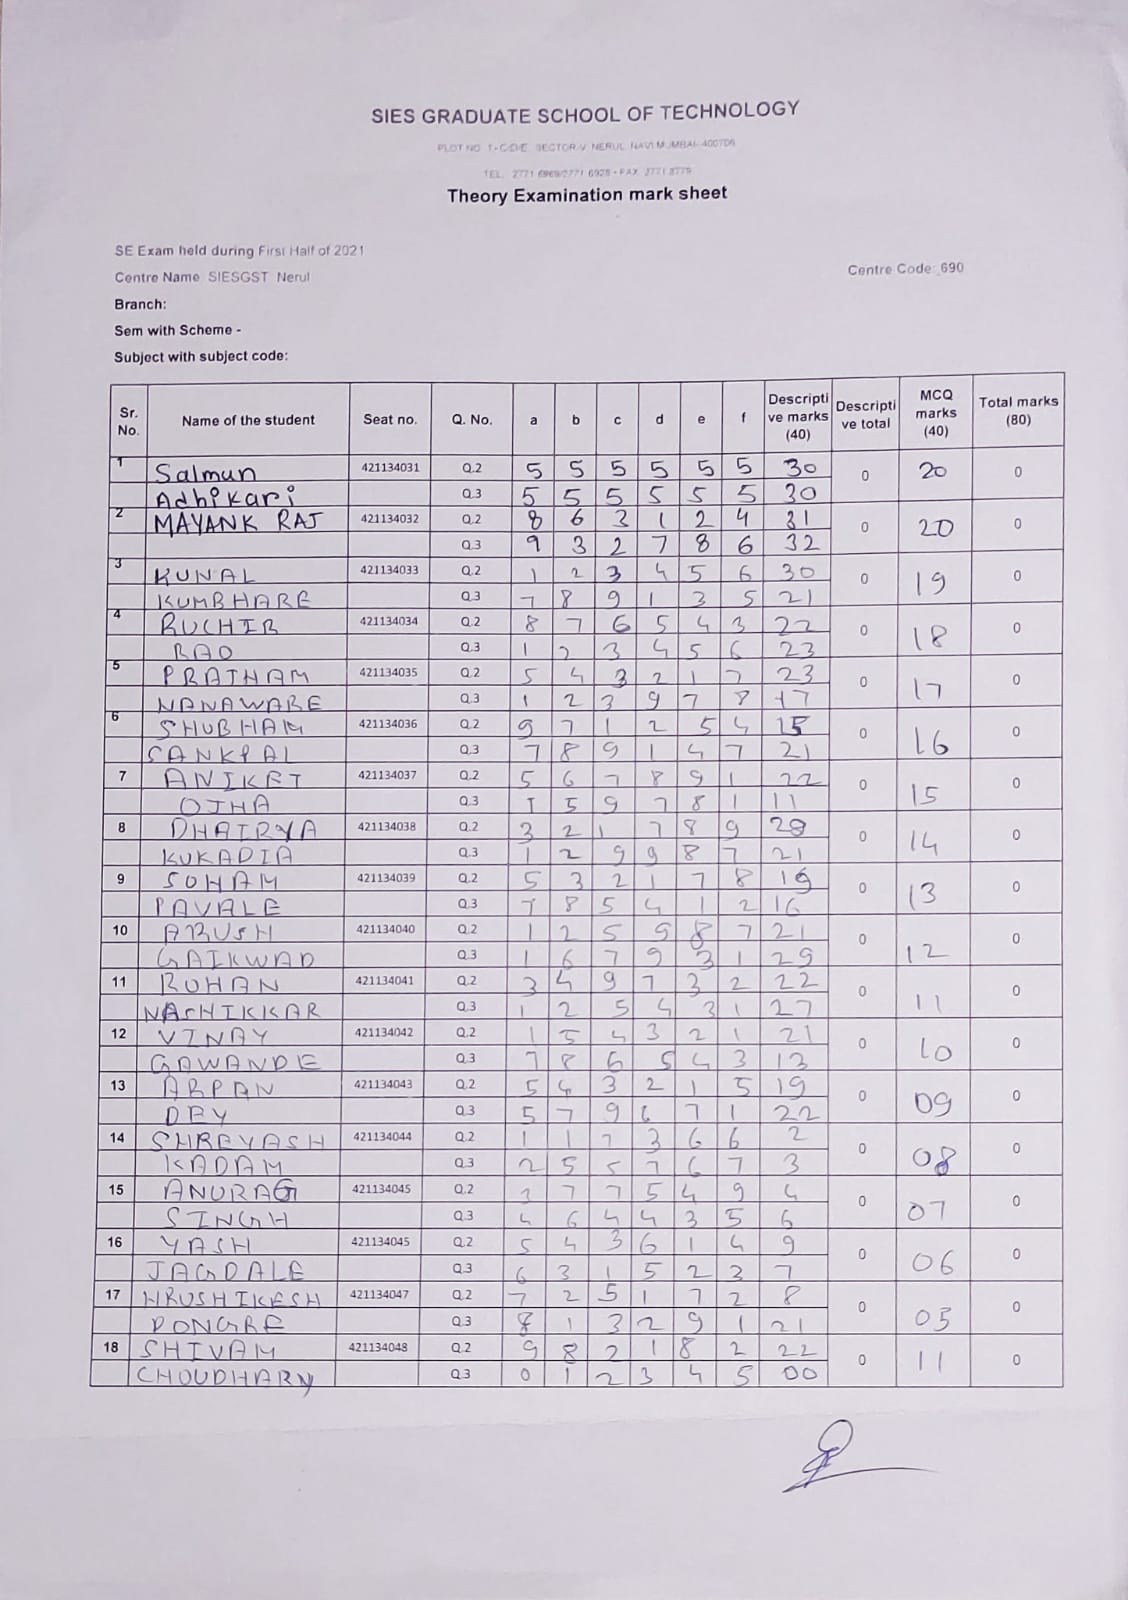 SIES GRADUATE SCHOOL OF TECHNOLOGY
PLOT NO. 1-C/D/E, SECTOR V, NERUL, NAVI MUMBAI-400706
TEL. 2771 6969/2771 6928 - FAX
Theory Examination mark sheet
SE Exam held during First Half of 2021
Centre Name SIESGST Nerul
Centre Code: 690
Branch:
Sem with Scheme -
Subject with subject code:
Sr. No. Name of the student Seat no. Q. No. a b c d e f Descriptive marks (40) Descriptive total MCQ marks (40) Total marks (80)
1 Salman 421134031 Q.2 5 5 5 5 5 5 30 0 20 0
Adhikari Q.3 5 5 5 5 5 5 30
2 MAYANK RAJ 421134032 Q.2 8 6 3 1 2 4 31 0 20 0
Q.3 9 3 2 7 8 6 32
3 KUNAL 421134033 Q.2 1 2 3 4 5 6 30 0 19 0
KUMBHARE Q.3 7 8 9 1 3 5 21
4 RUCHIR 421134034 Q.2 8 7 6 5 4 3 22 0 18 0
RAO Q.3 1 2 3 4 5 6 23
5 PRATHAM 421134035 Q.2 5 4 3 2 1 7 23 0 17 0
NANAWARE Q.3 1 2 3 9 7 8 17
6 SHUBHAM 421134036 Q.2 9 7 1 2 5 4 15 0 16 0
SANKPAL Q.3 7 8 9 1 4 7 21
7 ANIKET 421134037 Q.2 5 6 7 8 9 1 22 0 15 0
OJHA Q.3 1 5 9 7 8 1 11
8 DHAIRYA 421134038 Q.2 3 2 1 7 8 9 20 0 14 0
KUKADIA Q.3 1 2 9 9 8 7 21
9 SOHAM 421134039 Q.2 5 3 2 1 7 8 19 0 13 0
PAVALE Q.3 7 8 5 4 1 2 16
10 ARUSH 421134040 Q.2 1 2 5 9 8 7 21 0 12 0
GAIKWAD Q.3 1 6 7 9 3 1 29
11 ROHAN 421134041 Q.2 3 4 9 7 3 2 22 0 11 0
NASHIKKAR Q.3 1 2 5 4 3 1 27
12 VINAY 421134042 Q.2 1 5 4 3 2 1 21 0 10 0
GAWANDE Q.3 7 8 6 5 4 3 13
13 ARPAN 421134043 Q.2 5 4 3 2 1 5 19 0 09 0
DEY Q.3 5 7 9 6 7 1 22
14 SHREYASH 421134044 Q.2 1 1 7 3 6 6 2 0 08 0
KADAM Q.3 2 5 5 7 6 7 3
15 ANURAG 421134045 Q.2 3 7 7 5 4 9 4 0 07 0
SINGH Q.3 4 6 4 4 3 5 6
16 YASH 421134045 Q.2 5 4 3 6 1 4 9 0 06 0
JAGDALE Q.3 6 3 1 5 2 3 7
17 HRUSHIKESH 421134047 Q.2 7 2 5 1 7 2 8 0 05 0
DONGRE Q.3 8 1 3 2 9 1 21
18 SHIVAM 421134048 Q.2 9 8 2 1 8 2 22 0 11 0
CHOUDHARY Q.3 0 1 2 3 4 5 00